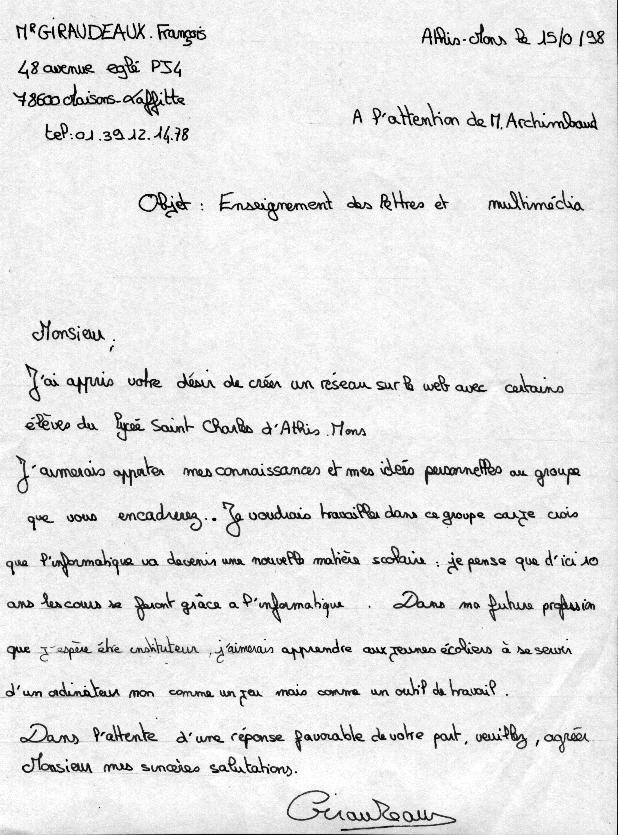 Mr GIRAUDEAUX. François
48 avenue eglé PJ4
78600 Maisons-Laffitte
tel: 01.39.12.14.78
Athis-Mons le 15/0/98
A l'attention de M. Archimbaud
Objet : Enseignement des lettres et multimédia
Monsieur,
J'ai appris votre désir de créer un réseau sur le web avec certains
élèves du lycée Saint Charles d'Athis.Mons
J'aimerais apporter mes connaissances et mes idées personnelles au groupe
que vous encadrerez.. Je voudrais travailler dans ce groupe car je crois
que l'informatique va devenir une nouvelle matière scolaire ; je pense que d'ici 10
ans les cours se feront grâce a l'informatique . Dans ma future profession
que j'espère être instituteur, j'aimerais apprendre aux jeunes écoliers à se servir
d'un ordinateur non comme un jeu mais comme un outil de travail.
Dans l'attente d'une réponse favorable de votre part, veuillez, agréer
Monsieur mes sincères salutations.
Giraudeaux